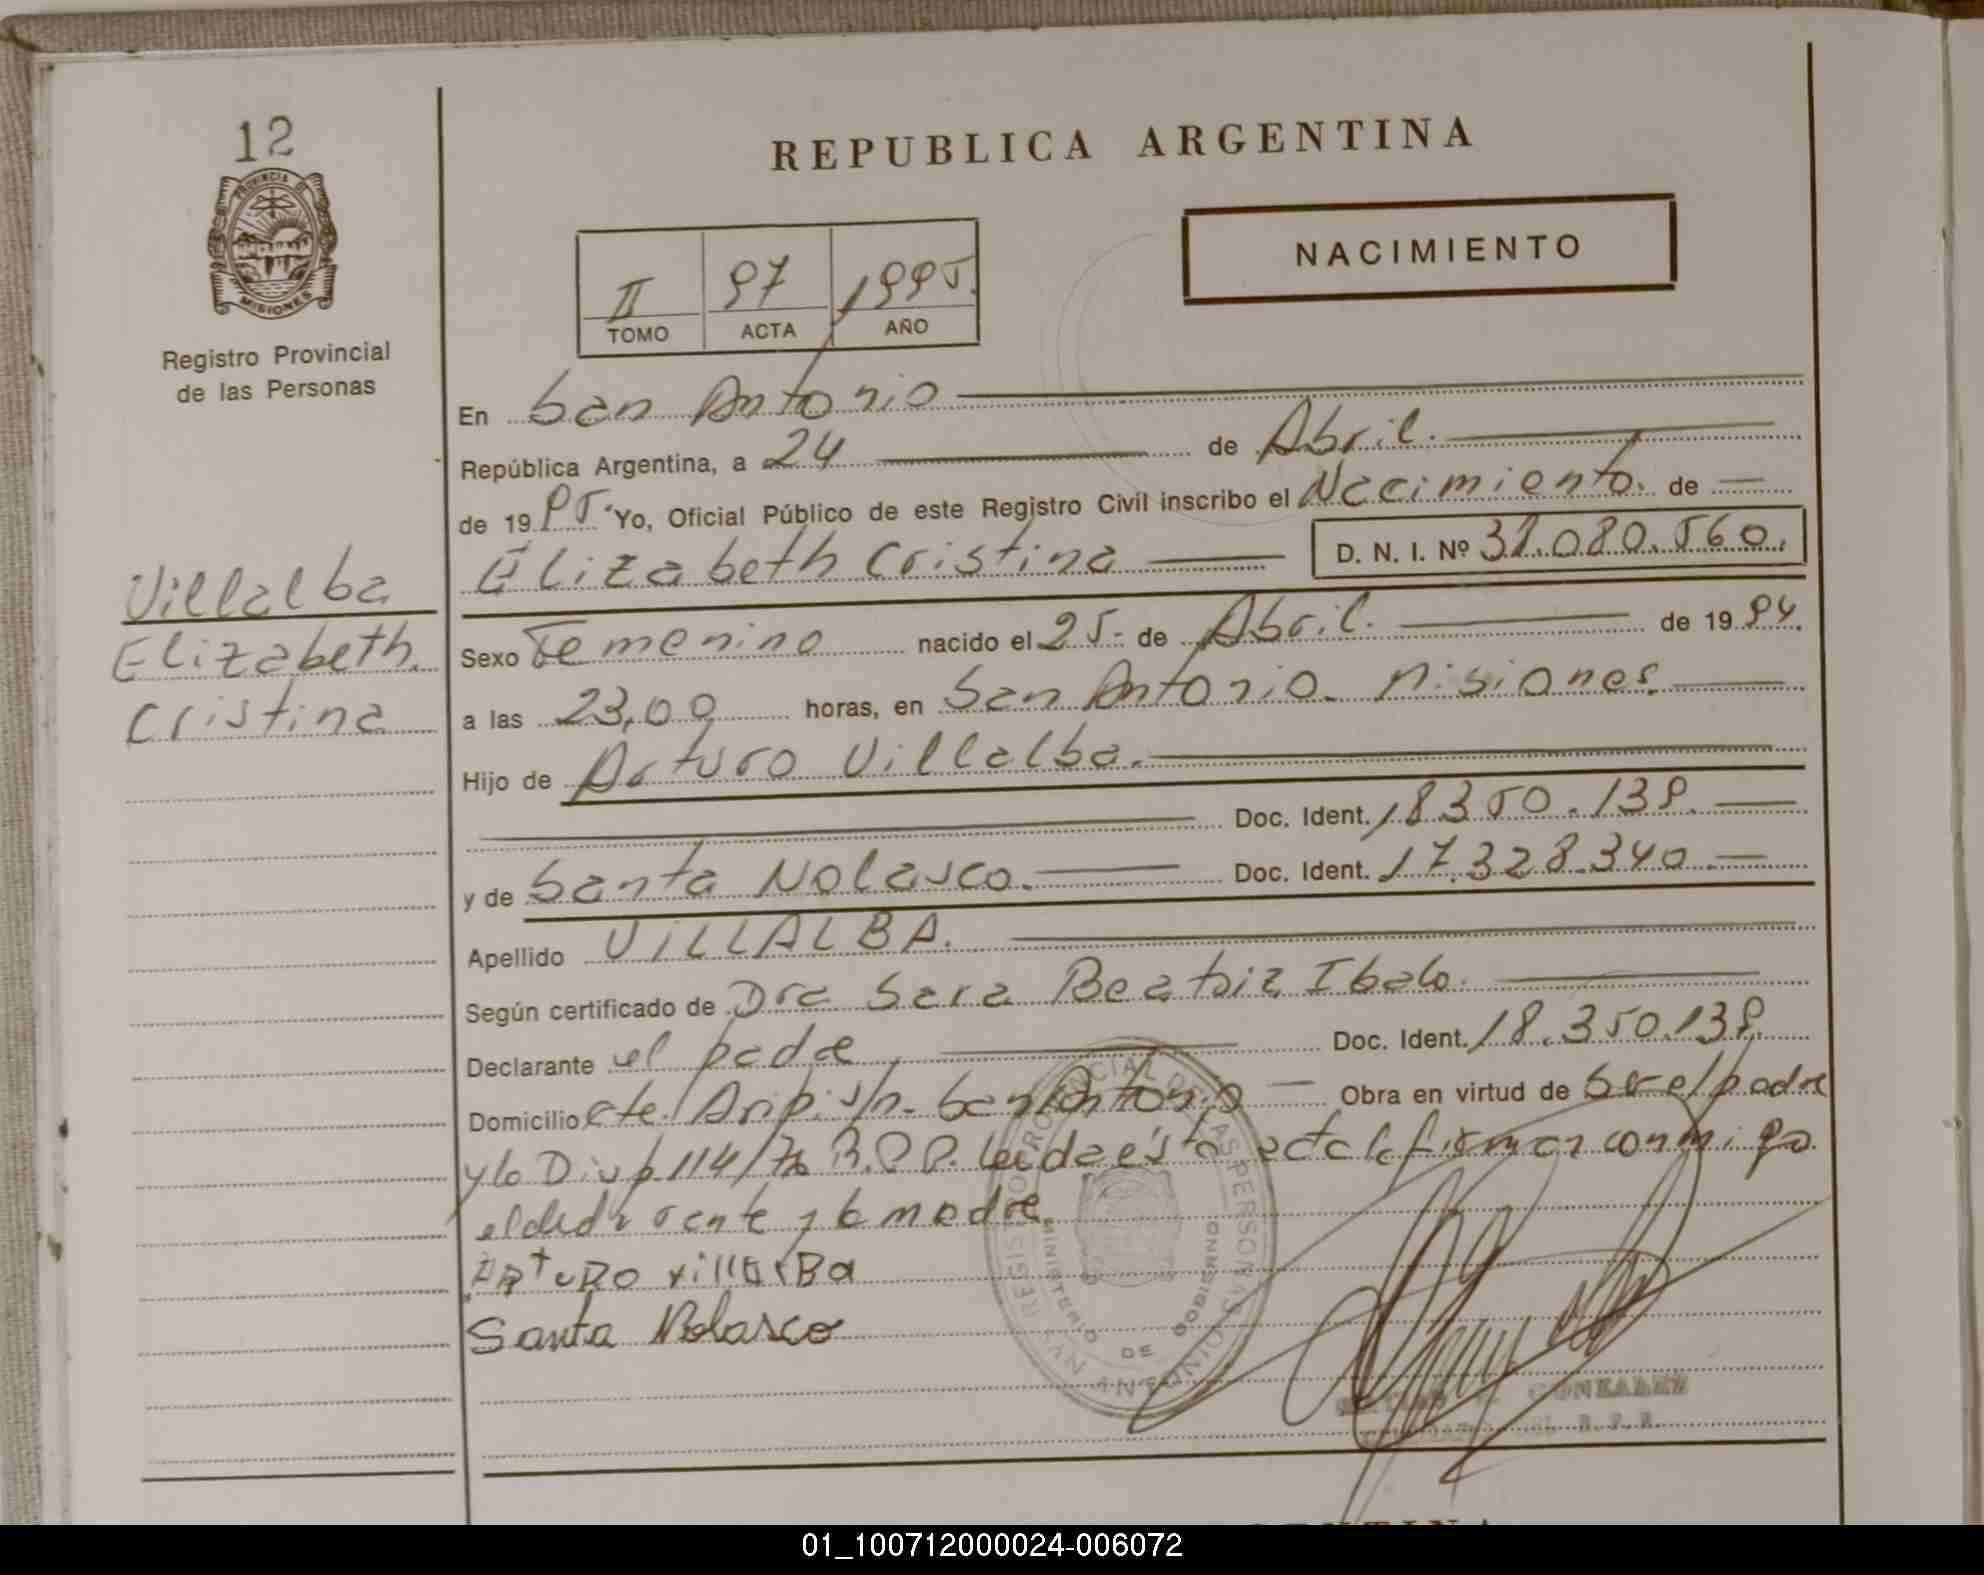 12
PROVINCIA DE
MISIONES
Registro Provincial
de las Personas
REPUBLICA ARGENTINA
NACIMIENTO
II 97 1995.
TOMO ACTA AÑO
En San Antonio
República Argentina, a 24 de Abril.
de 19 95 Yo, Oficial Público de este Registro Civil inscribo el Nacimiento. de
Elizabeth Cristina D. N. I. Nº 38.080.560.
Villalba
Elizabeth
Cristina
Sexo Femenino nacido el 25- de Abril. de 19 94.
a las 23,00 horas, en San Antonio. Misiones.
Hijo de Arturo Villalba.
Doc. Ident. 18350.139.
y de Santa Nolasco. Doc. Ident. 17.328.340.
Apellido VILLALBA.
Según certificado de Dra Sara Beatriz Ibalo.
Declarante el padre Doc. Ident. 18.350.139.
Domicilio s/n. San Antonio Obra en virtud de Ser el padre
y lo Disp. 114/ Leida ésta acta la firman conmigo
el declarante y la madre.
ARTURO villalBa
Santa Nolasco
REGISTRO PROVINCIAL DE LAS PERSONAS
MINISTERIO DE GOBIERNO
SAN ANTONIO
GONZALEZ
R. P. P.
01_100712000024-006072